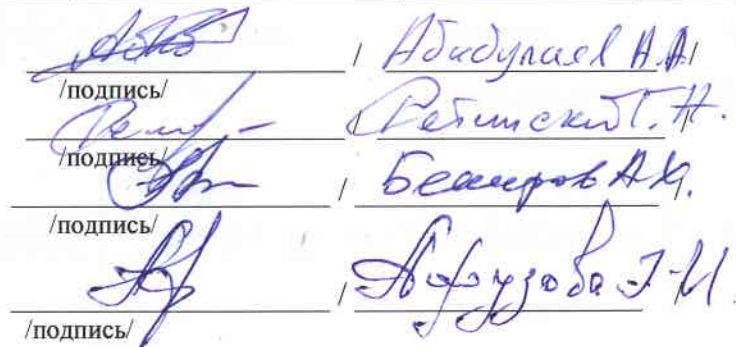 / Абибулаев А.А/
/подпись/
/ Ретинский Г.Н. /
/подпись/
/ Бекиров А.Х.
/подпись/
/ Афузова Э.И.
/подпись/